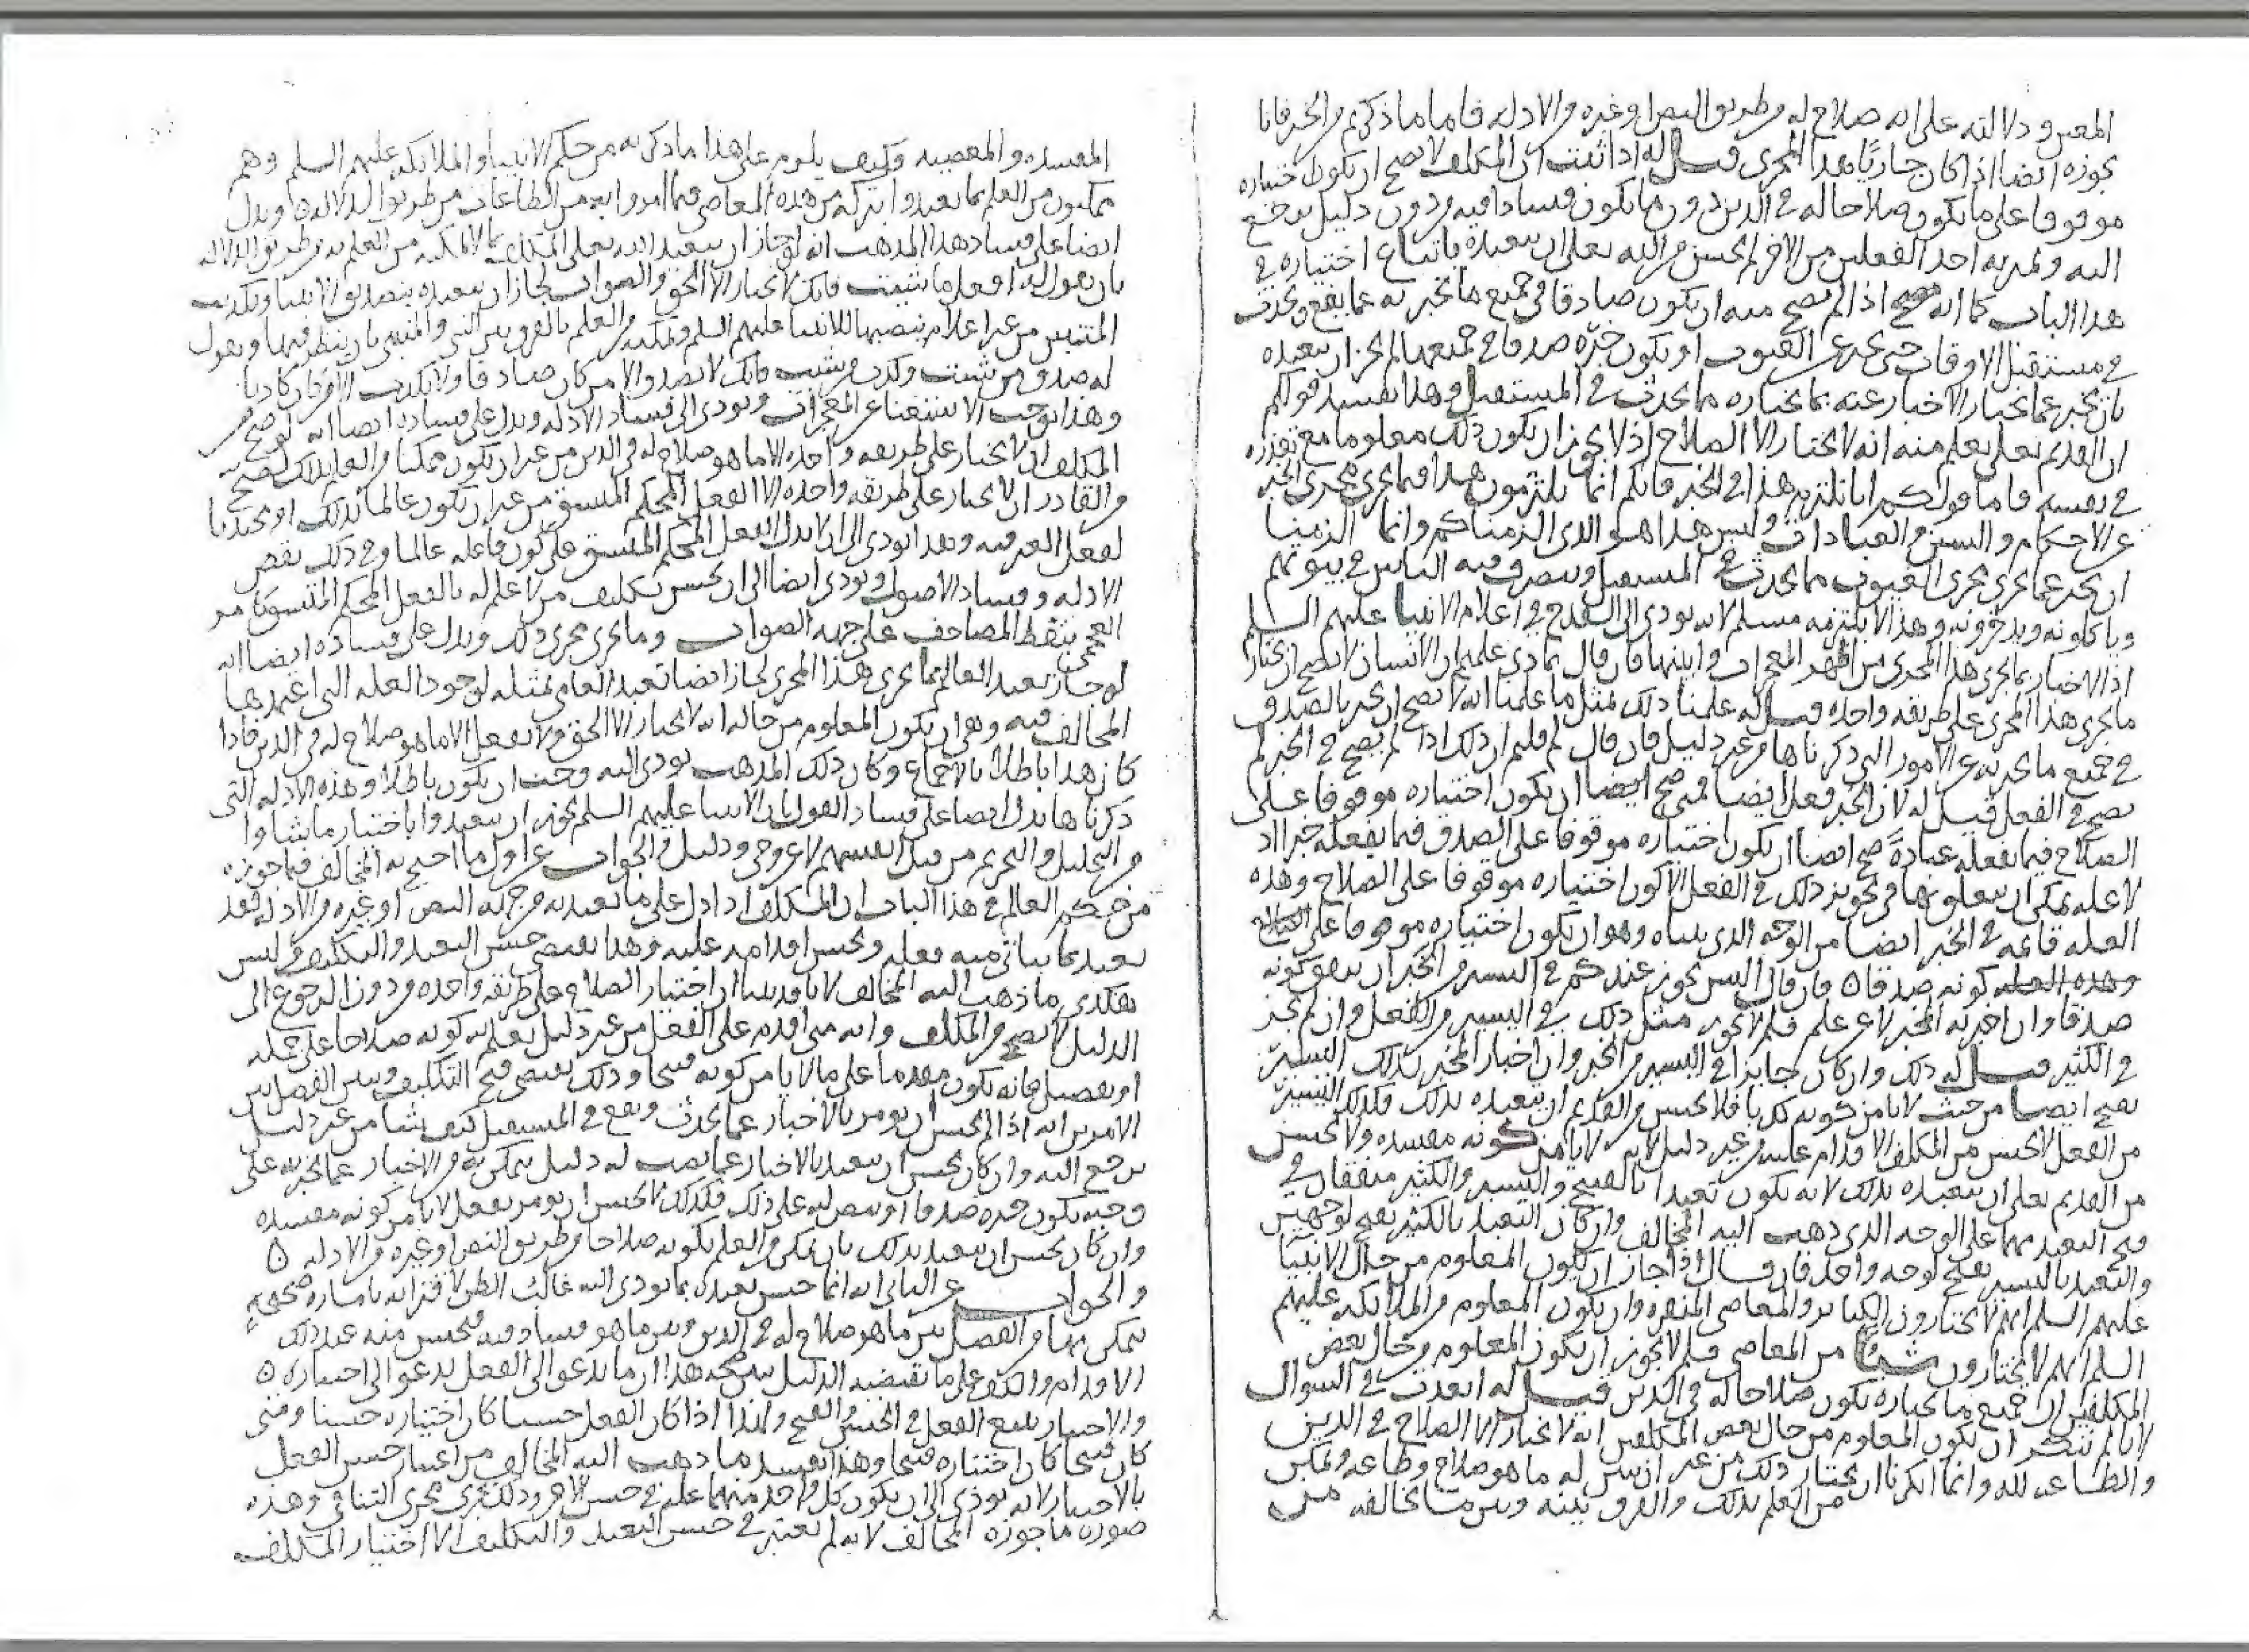 المعين ودلالته على انه صلاح له من طريق النص او غيره من الادله فاما ما ذكرتم من الخبر فانا
نجوزه ايضا اذا كان جاريا هذا المجرى قيل له اذا ثبت ان المكلف لا يصح ان يكون اختياره
موقوفا على ما يكون صلاحا له في الدين دون ما يكون فسادا فيه من دون دليل يرجع
اليه ويميز به احد الفعلين من الاخر لم يحسن من الله تعالى ان يتعبده باتباع اختياره في
هذا الباب كما انه يصح اذا لم يصح منه ان يكون صادقا في جميع ما يخبر به عما يقع ويحدث
في مستقبل الاوقات حتى يخبر عن الغيوب او يكون خبره صدقا في جميعها لم يجز ان يتعبده
بان يخبر عما يختار الاخبار عنه بما يختاره مما يحدث في المستقبل وهذا يفسد قولكم
ان القديم تعالى يعلم منه انه لا يختار الا الصلاح اذ لا يجوز ان يكون ذلك معلوما مع تعذره
في نفسه فاما قولكم انا نلتزم هذا في الخبر فانكم انما تلتزمون هذا فيما يجري مجرى الخبر
عن الاحكام والسنن والعبادات وليس هذا هو الذي الزمناكم وانما الزمنا
ان يخبر عما يجري مجرى الغيوب مما يحدث في المستقبل ويتصرف فيه الناس في بيوتهم
وياكلونه ويدخرونه وهذا لا يلتزمه مسلم لانه يودي الى القدح في اعلام الانبيا عليهم السلم
اذ الاخبار بما يجري هذا المجرى من اظهر المعجزات وابينها فان قال بماذي علمتم ان الانسان لا يصح ان يختار
ما يجري هذا المجرى على طريقه واحده قيل له علمنا ذلك بمثل ما علمنا انه لا يصح ان يخبر بالصدق
في جميع ما يخبر به عن الامور التي ذكرناها من غير دليل فان قال لم قلتم ان ذلك اذا لم يصح في الخبر لم
يصح في الفعل قيل له لان الخبر فعل ايضا فمتى صح ايضا ان يكون اختياره موقوفا على
الصلاح فيما يفعله عبادة صح ايضا ان يكون اختياره موقوفا على الصدق فيما يفعله خبرا اذ
لا عله يمكن ان يتعلق بها في تجويز ذلك في الفعل الا كون اختياره موقوفا على الصلاح وهذه
العله قائمه في الخبر ايضا من الوجه الذي بيناه وهو ان يكون اختياره موقوفا على الصلاح
وهذه العله كونه صدقا ٥ فان قال اليس يجوز عندكم في اليسير من الخبر ان يتفق كونه
صدقا وان اخبر به المخبر لا عن علم فلم لا يجوز مثل ذلك في اليسير من الفعل وان لم يجز
في الكثير قيل له ذلك وان كان جايزا في اليسير من الخبر وان اخبار المخبر بذلك اليسير
يقبح ايضا من حيث لا يامن كونه كذبا فلا يحسن من القديم ان يتعبده بذلك فكذلك اليسير
من الفعل لا يحسن من المكلف الاقدام عليه من غير دليل لانه لا يامن كونه مفسده ولا يحسن
من القديم تعالى ان يتعبده بذلك لانه يكون تعبدا بالقبيح واليسير والكثير متفقان في
قبح التعبد بهما على الوجه الذي ذهب اليه المخالف وان كان التعبد بالكثير يقبح لوجهين
والتعبد باليسير يقبح لوجه واحد فان قال اذا جاز ان يكون المعلوم من حال الانبيا
عليهم السلم انهم لا يختارون الكبائر والمعاصي المنفره وان يكون المعلوم من الملائكه عليهم
السلم انهم لا يختارون شيئا من المعاصي فلم لا يجوز ان يكون المعلوم من حال بعض
المكلفين ان جميع ما يختاره يكون صلاحا له في الدين قيل له ابعدت في السوال
لانا لم ننكر ان يكون المعلوم من حال بعض المكلفين انه لا يختار الا الصلاح في الدين
والطاعه لله وانما انكرنا ان يختار ذلك من غير ان يبين له ما هو صلاح وطاعه ويمكن
من العلم بذلك والفرق بينه وبين ما يخالفه من
المفسده والمعصيه وكيف يلزم على هذا ما ذكرته من حكم الانبيا والملائكه عليهم السلم وهم
ممكنون من العلم بما تعبدوا بتركه من هذه المعاصي وما امروا به من الطاعات من طريق الدلاله ٥ ويدل
ايضا على فساد هذا المذهب انه لو جاز ان يتعبد الله تعالى المكلف بما لا يمكنه من العلم به من طريق الدلاله
بان يقول له افعل ما شئت فانك لا تختار الا الحق والصواب لجاز ان يتعبده بتصديق الانبيا وتكذيب
المتنبين من غير اعلام ينصبها للانبيا عليهم السلم ويمكنه من العلم بالفرق بين النبي والمتنبي بان ينظر فيها ويقول
له صدق من شئت وكذب من شئت فانك لا تصدق الا من كان صادقا ولا تكذب الا من كان كاذبا
وهذا يوجب الاستغنا عن المعجزات ويودي الى فساد الادله ويدل على فساده ايضا انه لو صح من
المكلف ان لا يختار على طريقه واحده الا ما هو صلاح له في الدين من غير ان يكون ممكنا من العلم بذلك لصح
من القادر ان لا يختار على طريقه واحده الا الفعل المحكم المتسق من غير ان يكون عالما بذلك او محتذيا
لفعل الغير فيه وهذا يودي الى ان لا يدل الفعل المحكم المتسق على كون فاعله عالما وفي ذلك نقض
الادله وفساد الاصول ويودي ايضا الى ان يحسن تكليف من لا علم له بالفعل المحكم المتسق كامر
العجمي بنقط المصاحف على جهه الصواب وما يجري مجرى ذلك ويدل على فساده ايضا انه
لو جاز تعبد العالم بما يجري هذا المجرى لجاز ايضا تعبد العامي بمثله لوجود العله التي اعتمدها
المخالف فيه وهي ان يكون المعلوم من حاله انه لا يختار الا الحق ولا يفعل الا ما هو صلاح له في الدين فاذا
كان هذا باطلا بالاجماع وكان ذلك المذهب يودي اليه وجب ان يكون باطلا وهذه الادله التي
ذكرناها تدل ايضا على فساد القول بان الانبيا عليهم السلم يجوز ان يتعبدوا باختيار ما شاوا
من التحليل والتحريم من قبل انفسهم لا عن وحي ودليل والجواب عن اول ما احتج به المخالف فيما جوزه
من حكم العالم في هذا الباب ان المكلف اذا دل على ما تعبد به من جهه النص او غيره من الادله فقد
تعبد بما يتاتى منه فعله ويحسن اقدامه عليه وهذا يقتضي حسن التعبد والتكليف وليس
هكذى ما ذهب اليه المخالف لانا قد بينا ان اختيار الصلاح على طريقه واحده من دون الرجوع الى
الدليل لا يصح من المكلف وانه متى اقدم على الفعل من غير دليل يعلم به كونه صلاحا على جمله
او تفصيل فانه يكون مقدما على ما لا يامن كونه قبيحا وذلك يقتضي قبح التكليف ويبين الفصل بين
الامرين انه اذا لم يحسن ان يومر بالاخبار عما يحدث ويقع في المستقبل كيف شا من غير دليل
يرجع اليه وان كان يحسن ان يتعبد بالاخبار عما نصب له دليل يتمكن به من الاخبار عما يخبر به على
وجه يكون خبره صدقا او ينص له على ذلك فكذلك لا يحسن ان يومر بفعل لا يامن كونه مفسده
وان كان يحسن ان يتعبد بذلك بان يمكن من العلم بكونه صلاحا من طريق النص او غيره من الادله ٥
والجواب عن الثاني انه انما حسن تعبده بما يودي اليه غالب الظن لاقترانه باماره صحيحه
يتمكن بها من الفصل بين ما هو صلاح له في الدين وبين ما هو فساد فيه فيحسن منه عند ذلك
الاقدام والكف على ما تقتضيه الدليل يبين صحه هذا ان ما يدعو الى الفعل يدعو الى اختياره ٥
والاختيار يتبع الفعل في الحسن والقبح ولهذا اذا كان الفعل حسنا كان اختياره حسنا ومتى
كان قبيحا كان اختياره قبيحا وهذا يفسد ما ذهب اليه المخالف من اعتبار حسن الفعل
بالاختيار لانه يودي الى ان يكون كل واحد منهما عله في حسن الاخر وذلك يجري مجرى التنافي وهذه
صوره ما جوزه المخالف لانه لم يعتبر في حسن التعبد والتكليف الا اختيار المكلف